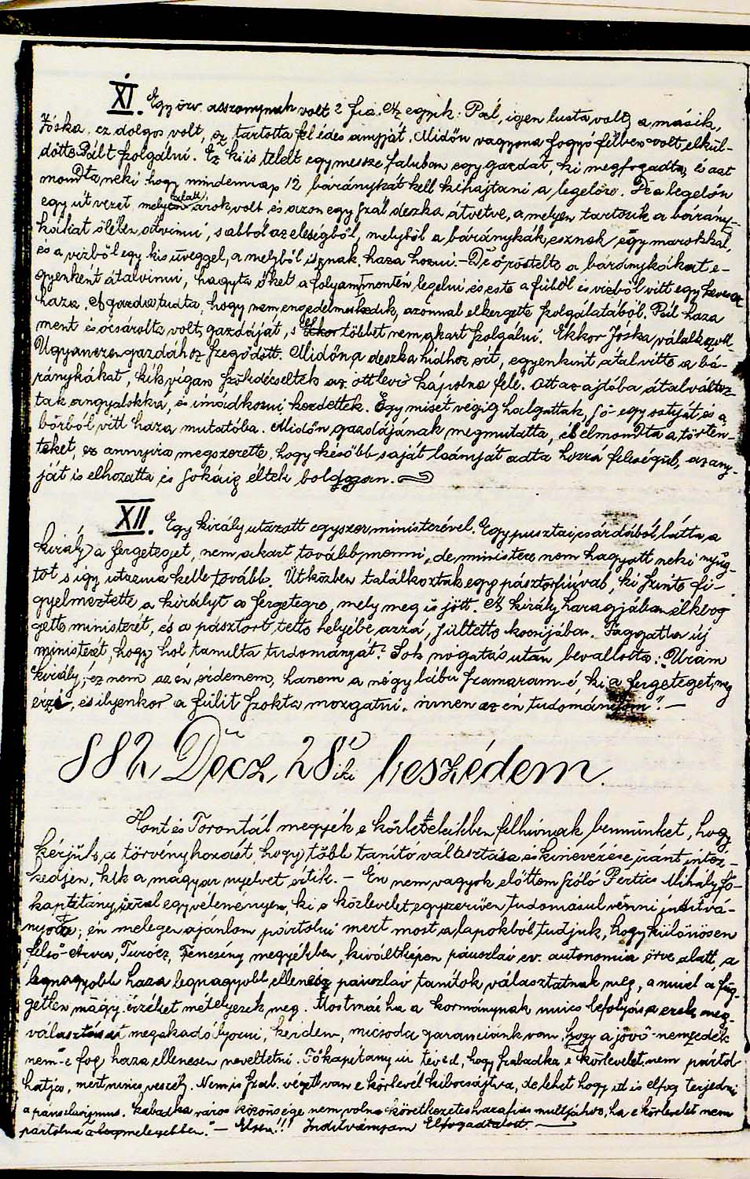 XI. Egy özv. asszonynak volt 2 fia. Az egyik: Pál, igen lusta volt, a másik,
Jóska, ez dolgos volt, ez tartotta fel édes anyját. Midőn vagyona fogyó félben volt, elkül-
dötte Pált szolgálni. Ez ki is telelt egy messze faluban egy gazdát, ki megfogadta, és azt
mondta neki hogy mindennap 12 báránykát kell kihajtani a legelőre. De a legelőn
egy út vezet, melyen árok volt, és azon egy szál deszka átvetve, a melyen tartozik a bárány-
kákat ölében átvinni, s abból az eleségből, melyből a báránykák esznek, egy marokkal,
és a vizből egy kis üveggel, a melyből isznak, haza hozni. – De ő röstelte a báránykákat e-
gyenként átalvinni, hagyta őket a folyam mentén legelni és este a fűből és vizből vitt egy keveset
haza. A gazda tudta, hogy nem engedelmeskedik, azonnal elkergete szolgálatából. Pál haza
ment és ócsárolta volt gazdáját, s többet nem akart szolgálni. Ekkor Jóska válalkozott.
Ugyanezen gazdához szegődött. Midőn a deszka hidhoz ért, egyenkint átalvitte a bá-
ránykákat, kik vigan szökdécseltek az ott levő kápolna felé. Ott az ajtóba átalváltoz-
tak angyalokká, és imádkozni kezdettek. Egy misét végig halgattak, Jó- egy
borból vitt haza mutatóba. Midőn gazdájának megmutatta, és elmondta a törten-
teket, ez annyira megszerette, hogy később saját leányját adta hozzá feleségül, az any-
ját is elhozatta és sokáig éltek boldogan.
XII. Egy király utazott egyszer ministerével. Egy pusztai csárdából látta a
király a fergeteget, nem akart tovább menni, de ministere nem hagyott neki nyug-
tot s igy utaznia kelle tovább. Útközben találkoztak egy pásztorfiúval, ki szinte fi-
gyelmeztette a királyt a fergetegre, mely meg is jött. A király haragjában elkerg-
gette ministerét, és a pásztort tette helyébe azzá, s ültette kocsijába. Faggatta új
ministerét, hogy hol tanulta tudományát? Sok nógatás után bevallotta: "Uram
király, ez nem az én érdemem, hanem a négy lábú szamaram-é, ki a fergeteget meg
érzé, és ilyenkor a fülit szokta mozgatni. innen az én tudományom". –
882 Decz. 28iki beszédem.
Hont és Torontál megyék e körleteleikben felhivnak bennünket, hogy
kérjük a törvényhozást hogy több tanító választása és kinevezése iránt intéz-
kedjen, kik a magyar nyelvet értik. – Én nem vagyok előttem szóló Pertics Mihály fő-
kapitány úrral egy véleményen, ki e körlevelet egyszerüen tudomásul venni inditvá-
nyozta; én melegen ajánlom pártolni mert most a lapokból tudjuk, hogy különösen
felső Árva, Turócz, Trencsény megyékben, kiváltképen pánszláv ev. autonomia örve alatt, a
legnagyobb haza legnagyobb ellenség pánszláv tanítók választatnak meg, a mivel a füg-
getlen magy. érzéket mételyezik meg. Most már ha a kormánynak nincs befolyása ezek meg-
választását megakadályozni, kérdem, micsoda garanciánk van, hogy a jövő nemzedék
nem-e fog haza ellenesen neveltetni. Főkapitány úr téved, hogy Szabadka e körlevelet nem pártol-
hatja, mert nincs veszély. Nem is szab. végett van e körlevél kibocsájtva, de lehet hogy itt is elfog terjedni
a pánszlavizmus. Szabadka város közönsége nem volna következetes hazafias multjához, ha e körlevelet nem
pártolná a legmelegebben." – Éljen!!! Inditványom Elfogadtatott.